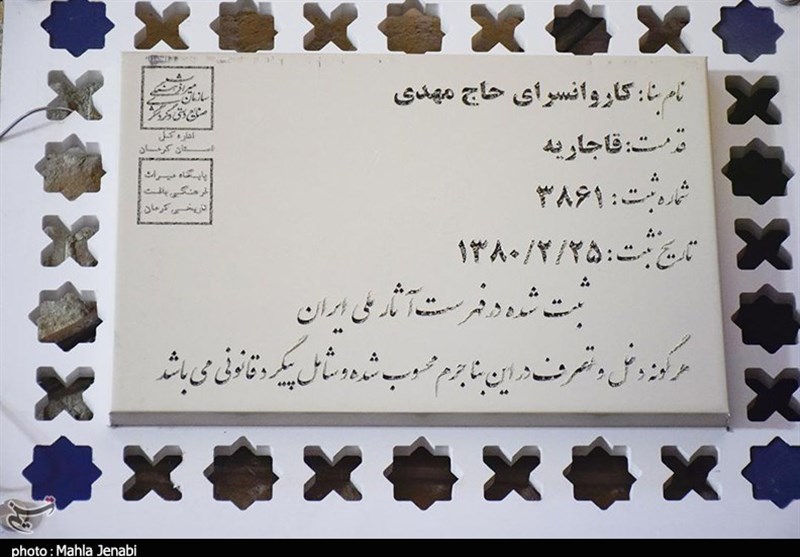 نام بنا: کاروانسرای حاج مهدی
قدمت: قاجاریه
شماره ثبت: ۳۸۶۱
تاریخ ثبت: ۱۳۸۰/۲/۲۵
ثبت شده در فهرست آثار ملی ایران
هرگونه دخل و تصرف در این بنا جرم محسوب شده و شامل پیگرد قانونی می باشد
سازمان میراث فرهنگی
صنایع دستی و گردشگری
اداره کل
استان کرمان
پایگاه میراث
فرهنگی بافت
تاریخی کرمان
تسنیم
photo : Mahla Jenabi